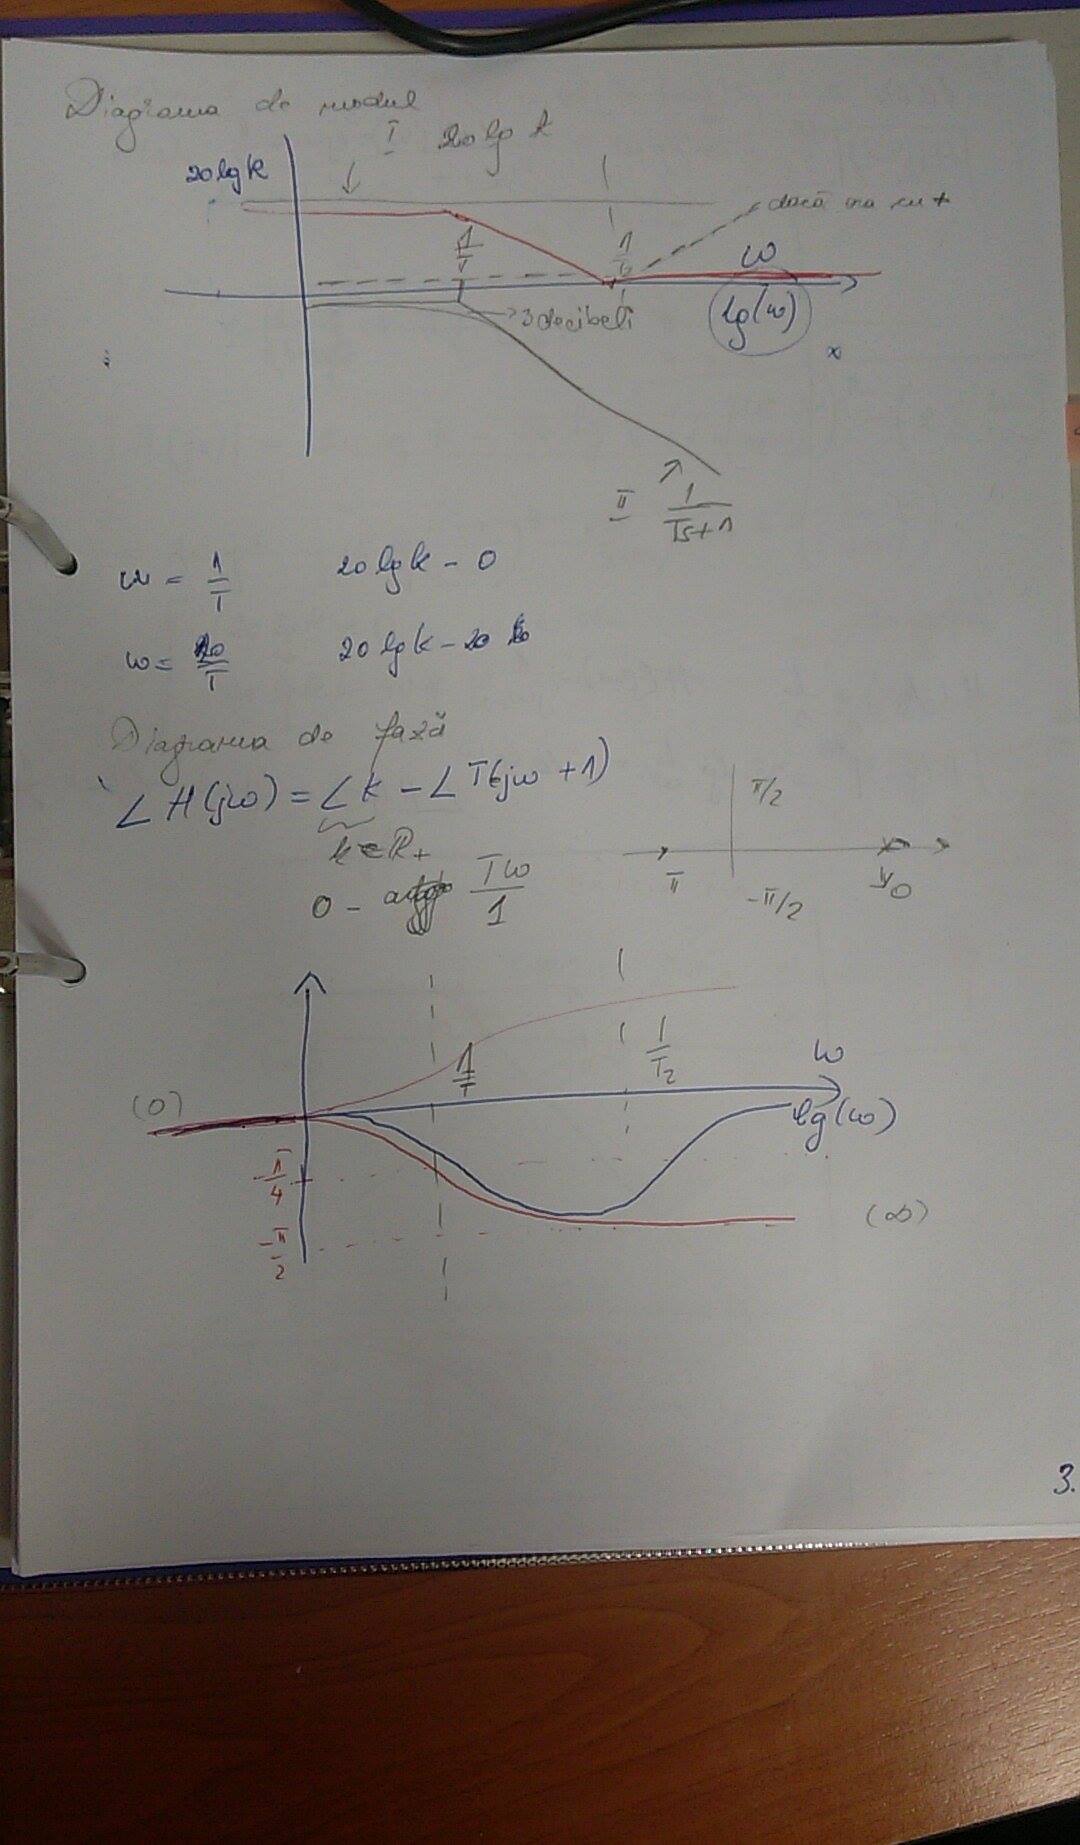 Diagrama de modul
I 20 lg k
20 lg k
dacă era cu +
1/T
1/T2
ω
lg(ω)
→ 3 decibeli
x
II 1/(Ts+1)
ω = 1/T 20 lg k - 0
ω = 10/T 20 lg k - 20
Diagrama de fază
∠ H(jω) = ∠ k - ∠ T(jω + 1)
k ∈ R+
0 - Tω/1
π/2
π
0
-π/2
1/T
1/T2
ω
(0)
lg(ω)
-π/4
(∞)
-π/2
3.